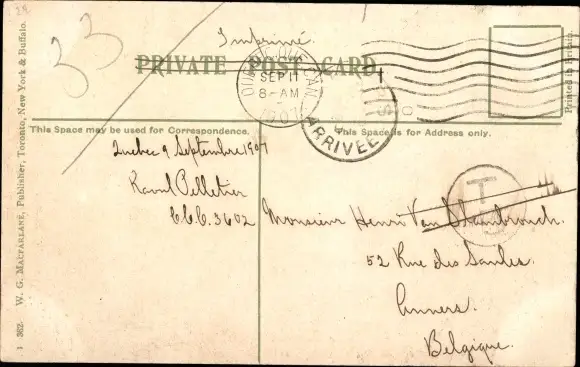 24
33
Imprimé
PRIVATE POST CARD
SEP 11
8-AM
1907
ARRIVÉE
T
Printed in Britain.
This Space may be used for Correspondence.
This Space is for Address only.
Quebec 9 Septembre 1907
Raoul Pelletier
C.C.C. 3602
Monsieur Henri Van
52 Rue des
Anvers.
Belgique.
1 362. W. G. MACFARLANE, Publisher, Toronto, New York & Buffalo.